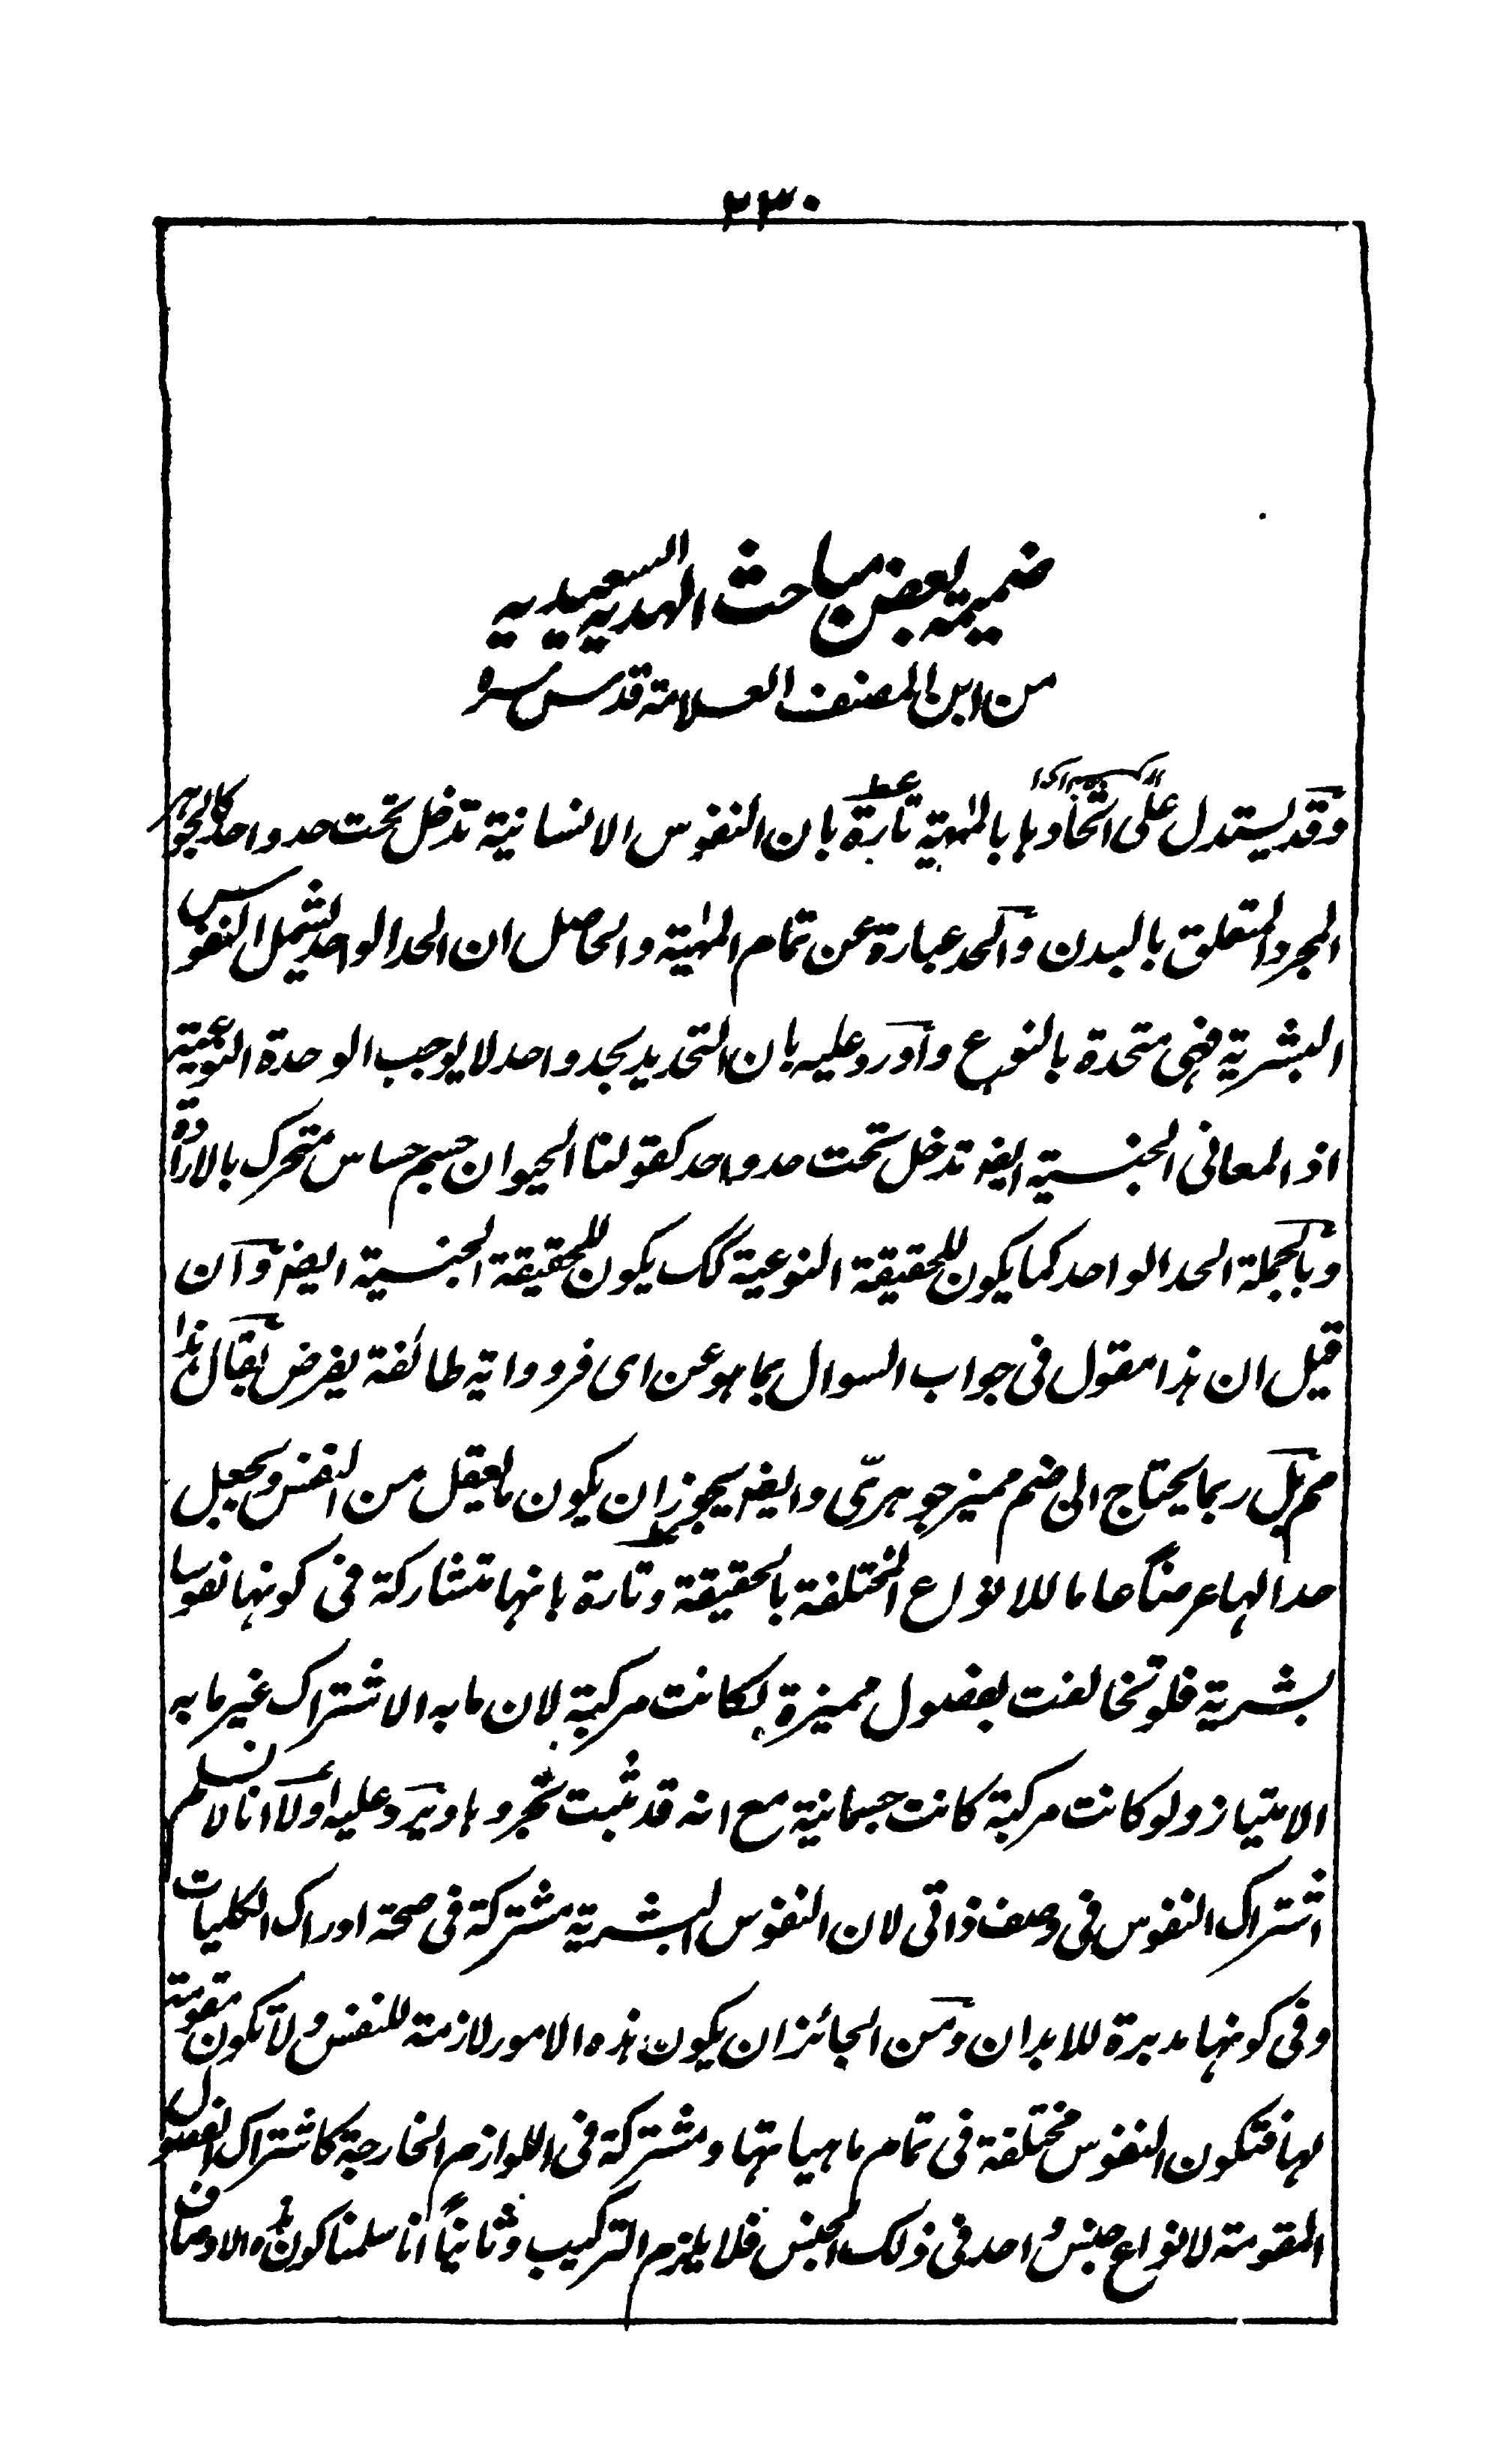 ٢٣٠
ضميمة بعض مباحث الهدية السعيدية
من ابن المصنف العلامة قدس سره
وقد يستدل على اتحادها بالمهية تارة بان النفوس الانسانية تدخل تحت حد واحد كالجوهر
المجرد المتعلق بالبدن والحد عبارة عن تمام المهية والحاصل ان الحد الواحد يشمل النفوس
البشرية فهى متحدة بالنوع واورد عليه بان التحديد بحد واحد لا يوجب الوحدة النوعية
اذ المعانى الجنسية ايضا تدخل تحت حد واحد كقولنا الحيوان جسم حساس متحرك بالارادة
وبالجملة الحد الواحد كما يكون للحقيقة النوعية كك يكون للحقيقة الجنسية ايضا وان
قيل ان هذا مقول فى جواب السوال بما هو عن اى فرد واية طائفة يفرض يقال هذا
مم بل ربما يحتاج الى ضم مميز جوهرى وايضا يجوز ان يكون ما يعقل من النفس ويجعل
حدا لها عرضاً عاما للانواع المختلفة بالحقيقة وتارة بانها متشاركة فى كونها نفوسا
بشرية فلو تخالفت بفصول مميزة لكانت مركبة لان ما به الاشتراك غير ما به
الامتياز ولو كانت مركبة كانت جسمانية مع انه قد ثبت تجردها ويرد عليه اولا انا لا نسلم
اشتراك النفوس فى وصف ذاتى لان النفوس البشرية مشتركة فى صحة ادراك الكليات
وفى كونها مدبرة للابدان ومن الجائز ان يكون هذه الامور لازمة للنفس ولا تكون مقومة
لها فتكون النفوس مختلفة فى تمام ماهياتها ومشتركة فى اللوازم الخارجة كاشتراك الفصول
المقومة لانواع جنس واحد فى ذلك الجنس فلا يلزم التركيب وثانياً انا سلمنا كون هذه الاوصاف